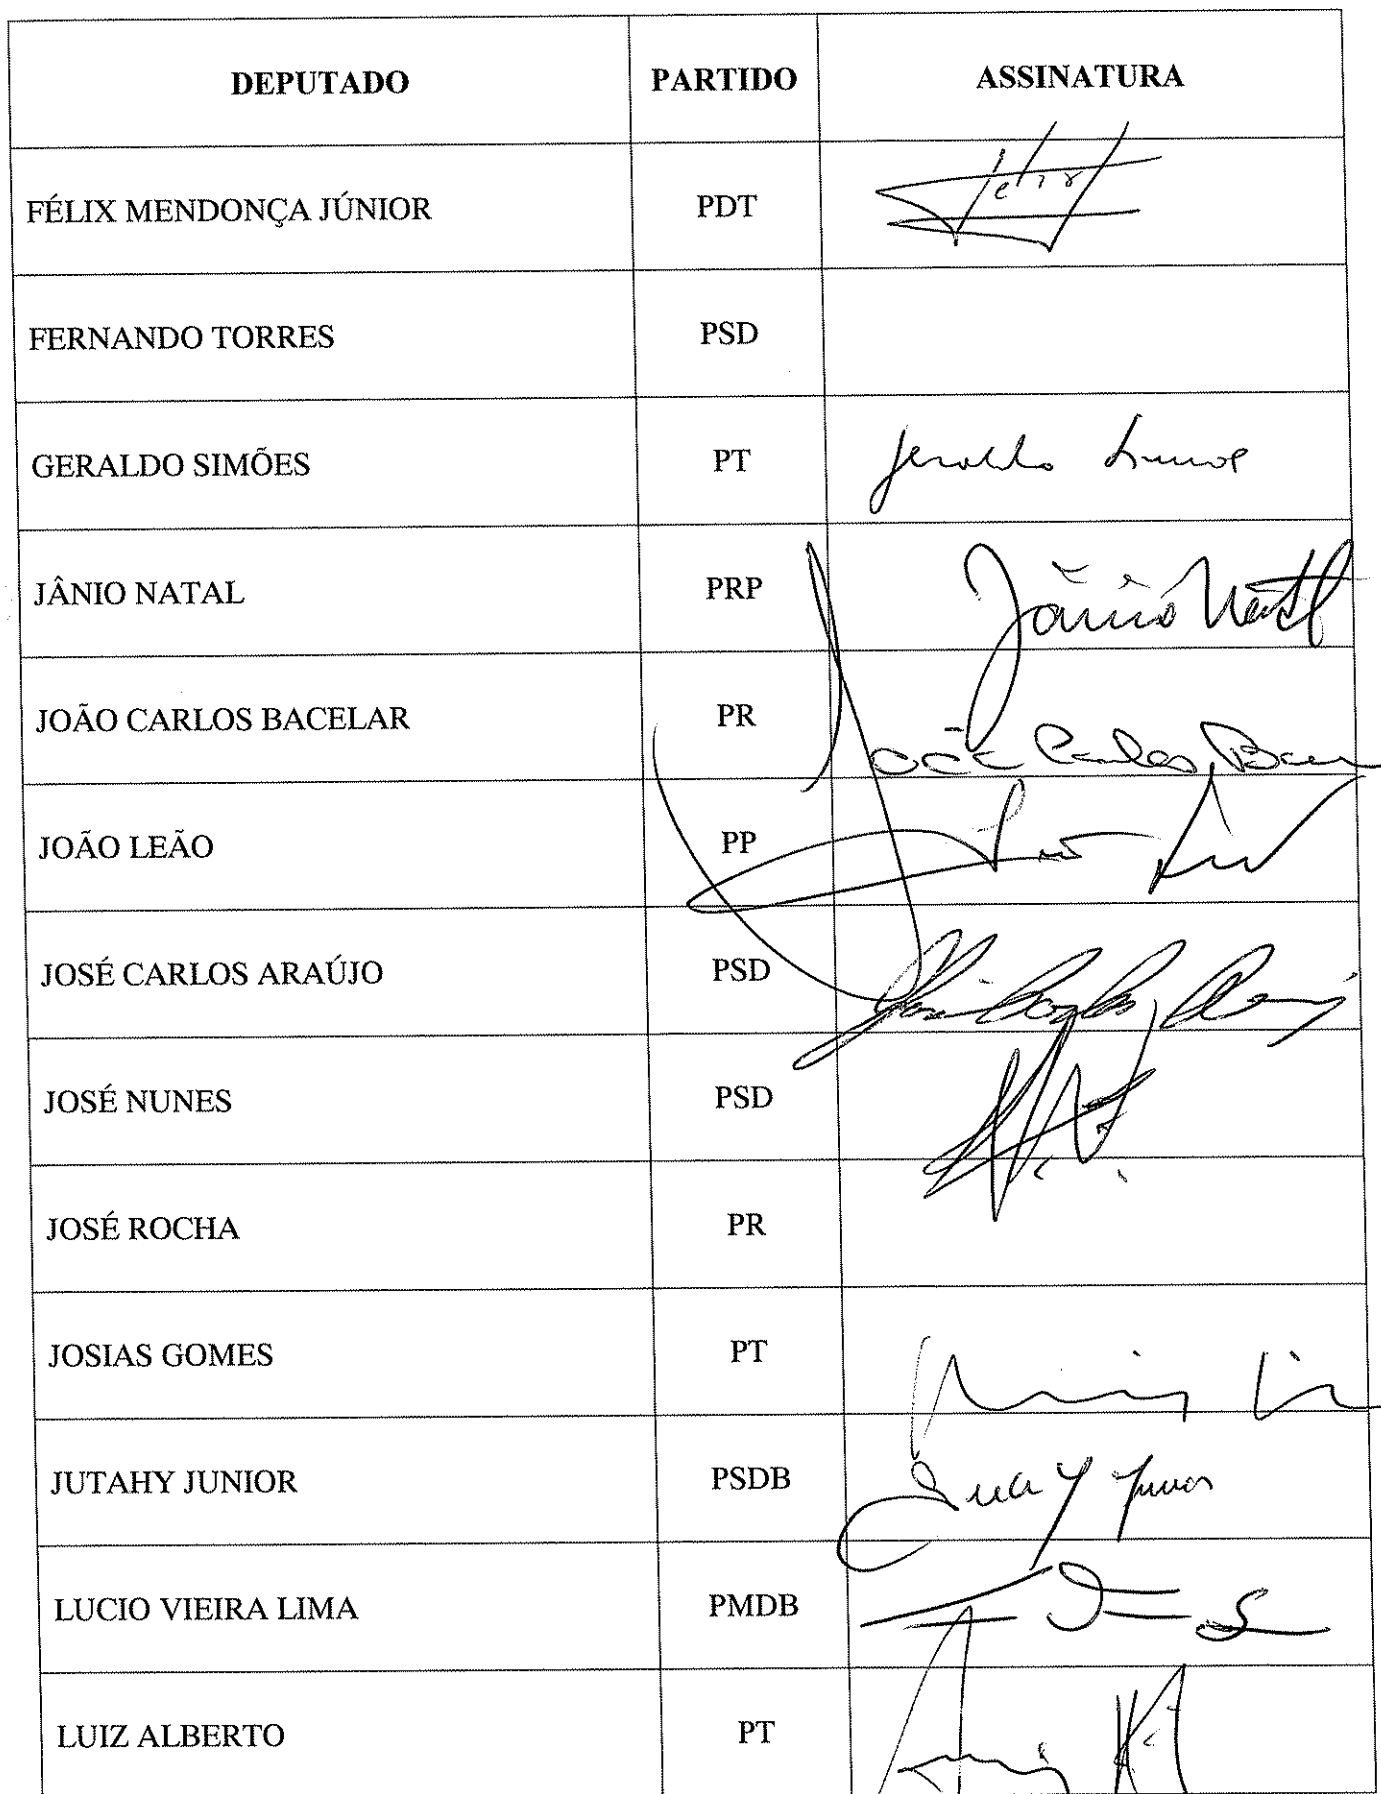 DEPUTADO PARTIDO ASSINATURA
FÉLIX MENDONÇA JÚNIOR PDT Felix
FERNANDO TORRES PSD
GERALDO SIMÕES PT Geraldo Simões
JÂNIO NATAL PRP Jânio Natal
JOÃO CARLOS BACELAR PR João Carlos Bace
JOÃO LEÃO PP
JOSÉ CARLOS ARAÚJO PSD José Carlos Araújo
JOSÉ NUNES PSD
JOSÉ ROCHA PR
JOSIAS GOMES PT
JUTAHY JUNIOR PSDB Junior
LUCIO VIEIRA LIMA PMDB
LUIZ ALBERTO PT